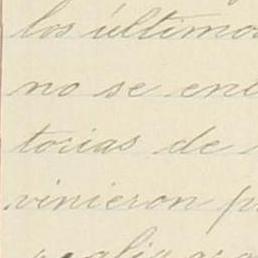 los últimos
no se en
torias de
vinieron p